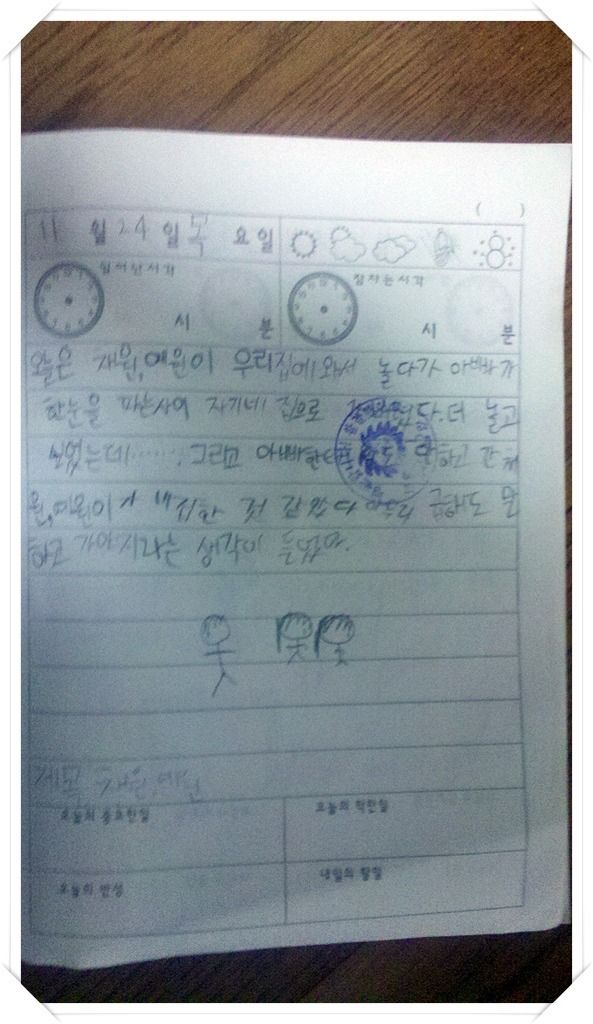 ( )
11 월 24 일 목 요일
일어난시각 잠자는시각
시 분 시 분
오늘은 재원,예원이 우리집에와서 놀다가 아빠가
한눈을 파는사이 자기네 집으로 더 놀고
싶었는데……. 그리고 아빠한테 하고 간
원,예원이가 한 것 같았다 급해도 말
하고 가야지라는 생각이 들었다.
제목 재원,예원
오늘의 중요한일 오늘의 착한일
오늘의 반성 내일의 할일